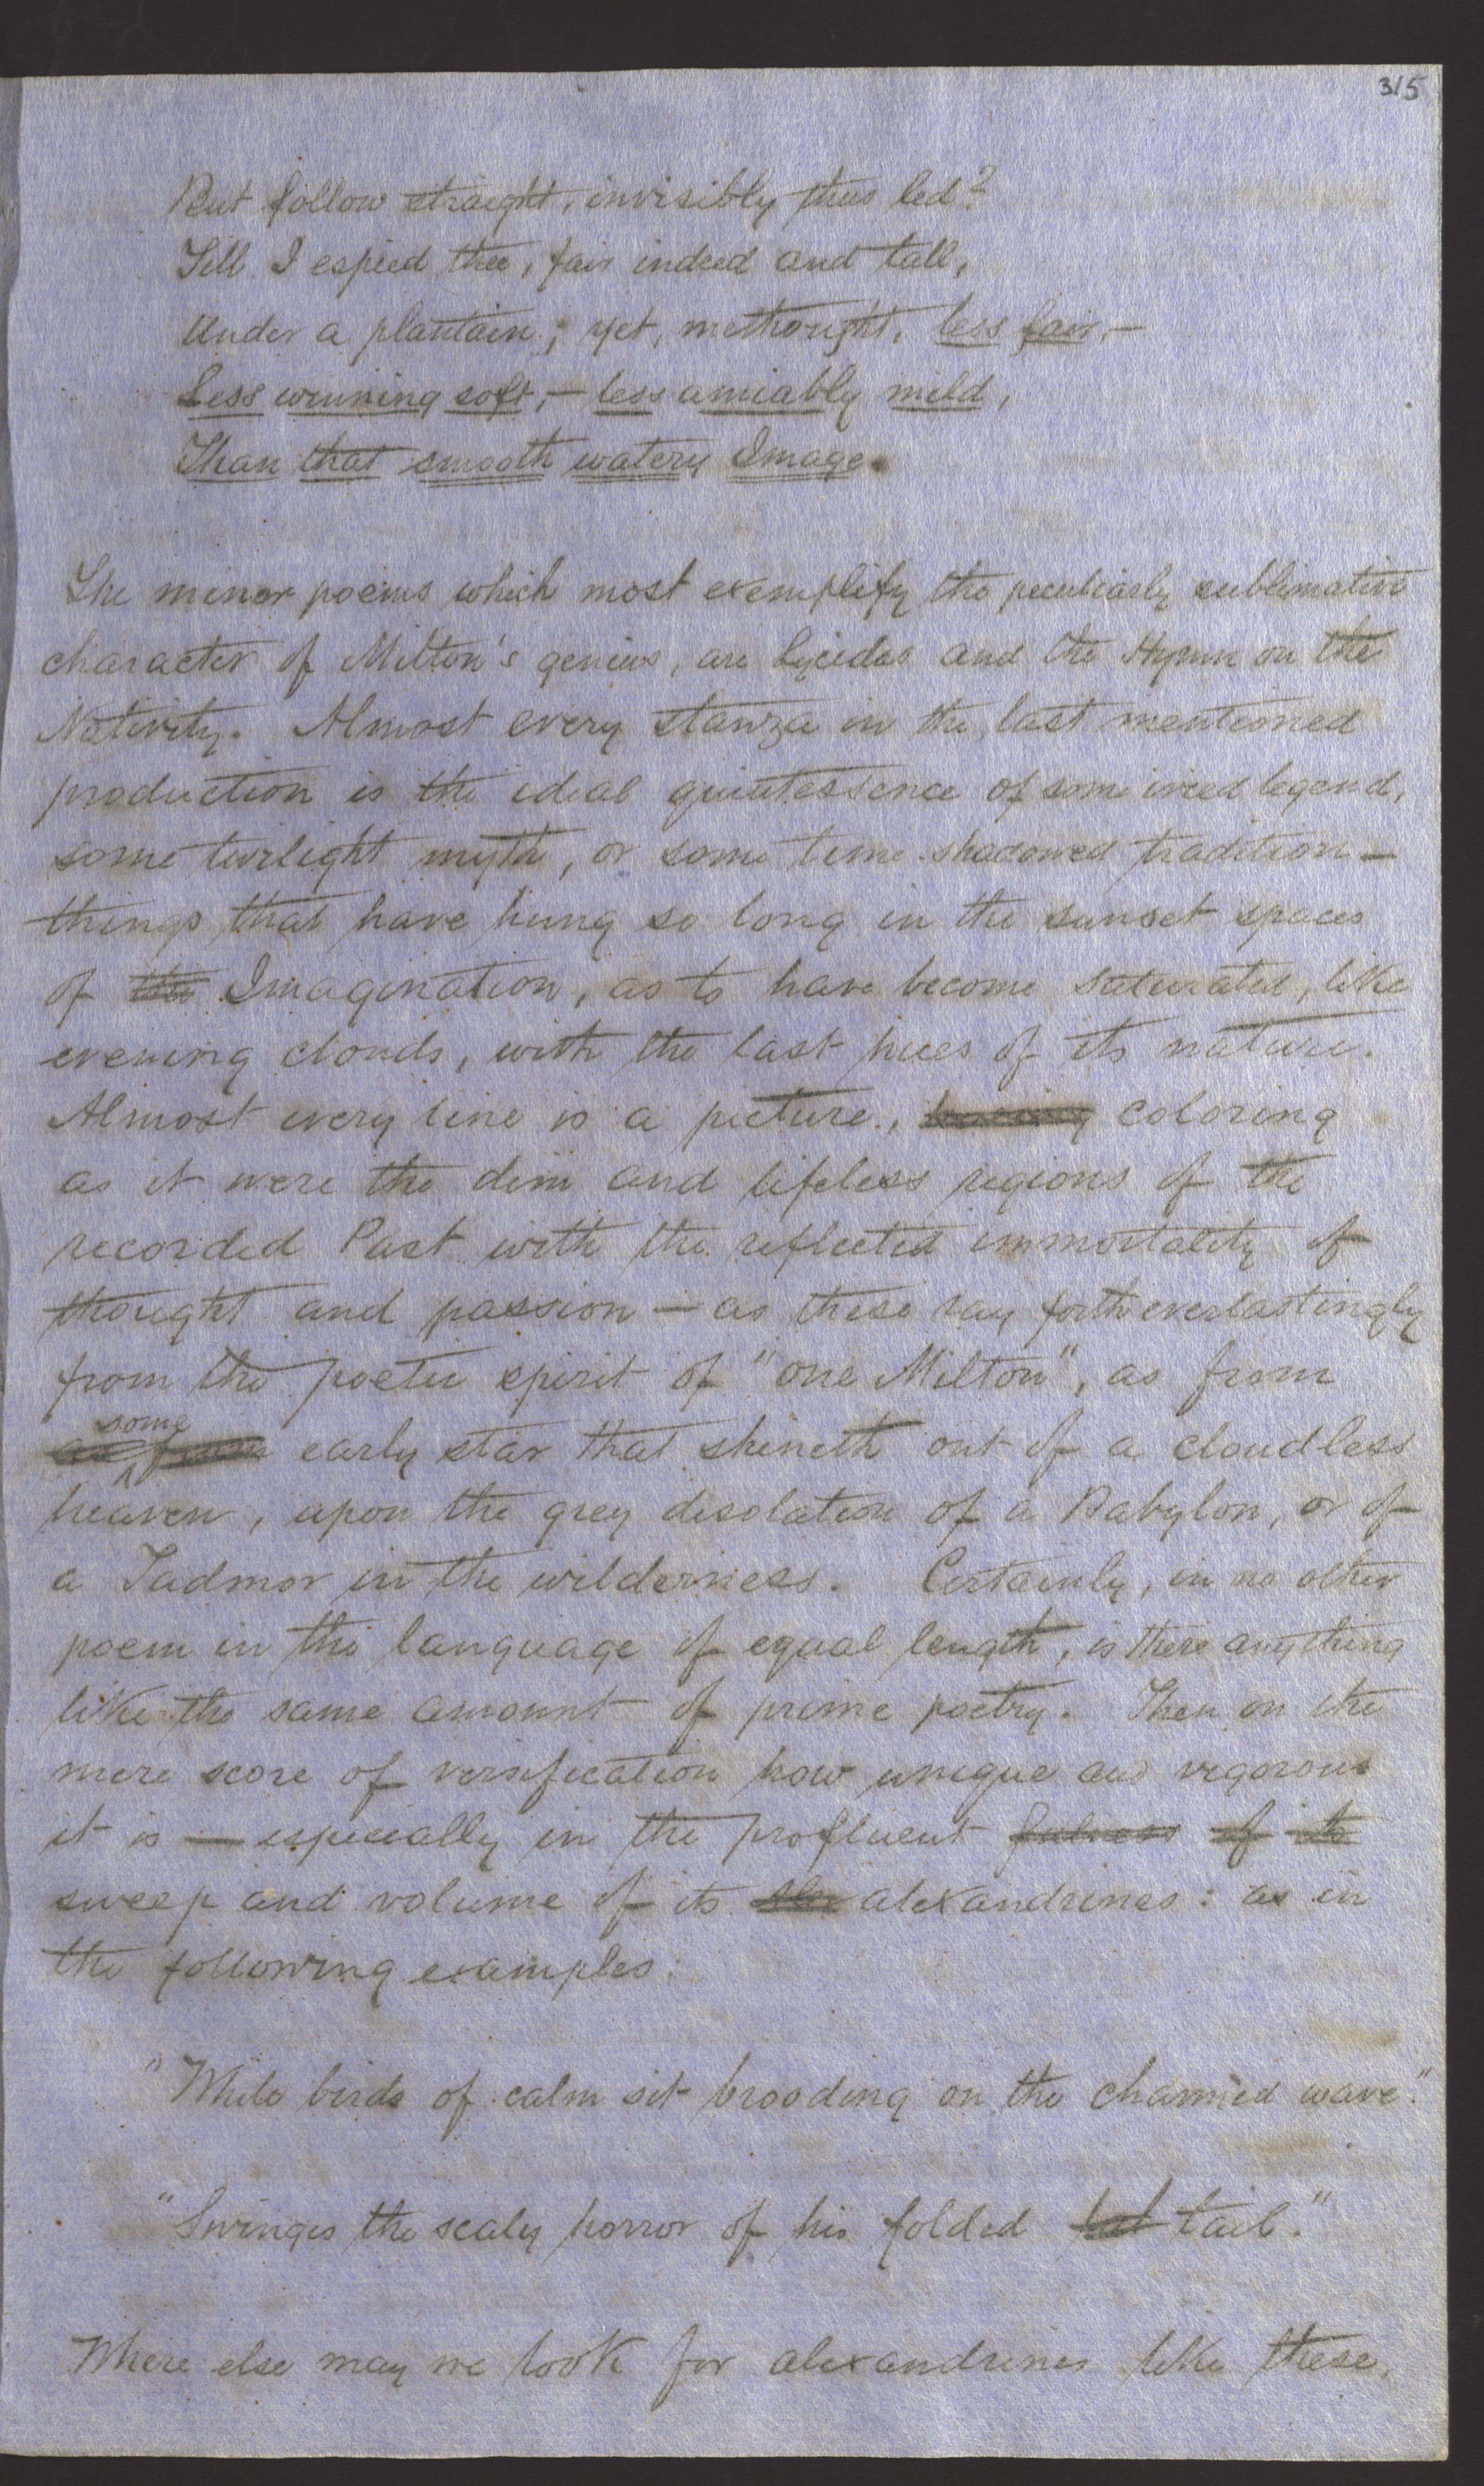 315
But follow straight, invisibly thus led?
Till I espied thee, fair indeed and tall,
Under a plantain; yet, methought, less fair,—
Less winning soft,— less amiably mild,
Than that smooth watery Image.
The minor poems which most exemplify the peculiarly sublimative
character of Milton's genius, are Lycidas and the Hymn on the
Nativity. Almost every stanza in the last mentioned
production is the ideal quintessence of some weird legend,
some twilight myth, or some time-shadowed tradition—
things that have hung so long in the sunset spaces
of the Imagination, as to have become saturated, like
evening clouds, with the last hues of its nature.
Almost every line is a picture, coloring
as it were the dim and lifeless regions of the
recorded Past with the reflected immortality of
thought and passion — as these ray forth everlastingly
from the poetic spirit of "one Milton", as from
some
as from early star that shineth out of a cloudless
heaven, upon the grey desolation of a Babylon, or of
a Tadmor in the wilderness. Certainly, in no other
poem in the language of equal length, is there anything
like the same amount of prime poetry. Then on the
mere score of versification how unique and vigorous
it is — especially in the profluent fulness of its
sweep and volume of its alexandrines: as in
the following examples:
"While birds of calm sit brooding on the charmed wave."
"Swinges the scaly horror of his folded tail."
Where else may we look for alexandrines like these,